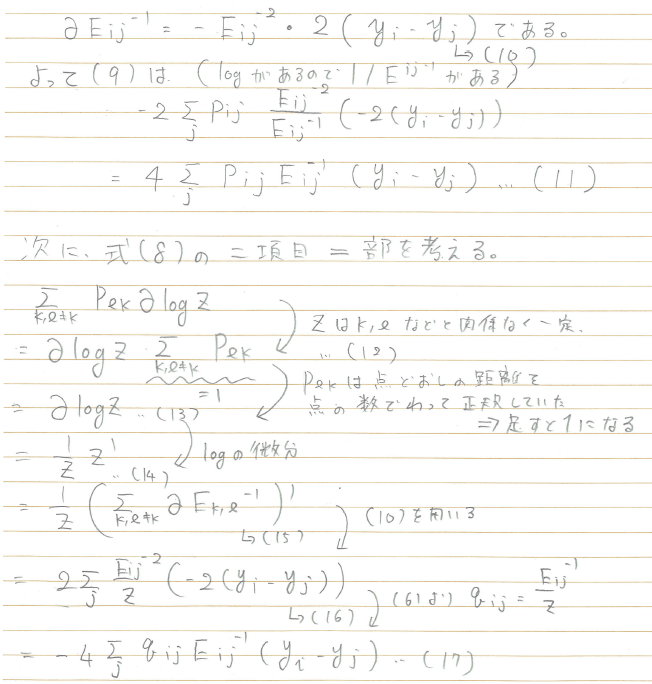 ∂Eij⁻¹ = - Eij⁻² · 2 (yi - yj) である。
↳ (10)
よって (9) は (logがあるので 1/E^ij⁻¹ がある)
-2 Σ_j Pij Eij⁻²/Eij⁻¹ (-2(yi - yj))
= 4 Σ_j Pij Eij⁻¹ (yi - yj) … (11)
次に、式(8)の二項目 = 部を考える。
Σ_{k,l≠k} Plk ∂log Z
Zはk,lなどと関係なく一定.
= ∂log Z · Σ_{k,l≠k} Plk … (12)
= 1
Plkは点どおしの距離を
= ∂log Z ‥ (13) 点の数でわって正規していた
⇒ 足すと1になる
= 1/Z Z' ‥ (14) logの微分
= 1/Z ( Σ_{k,l≠k} ∂Ek,l⁻¹ )' (10)を用いる
↳ (15)
= 2 Σ_j Eij⁻²/Z (-2(yi - yj)) (6)より qij = Eij⁻¹/Z
↳ (16)
= -4 Σ_j qij Eij⁻¹ (yi - yj) ‥ (17)